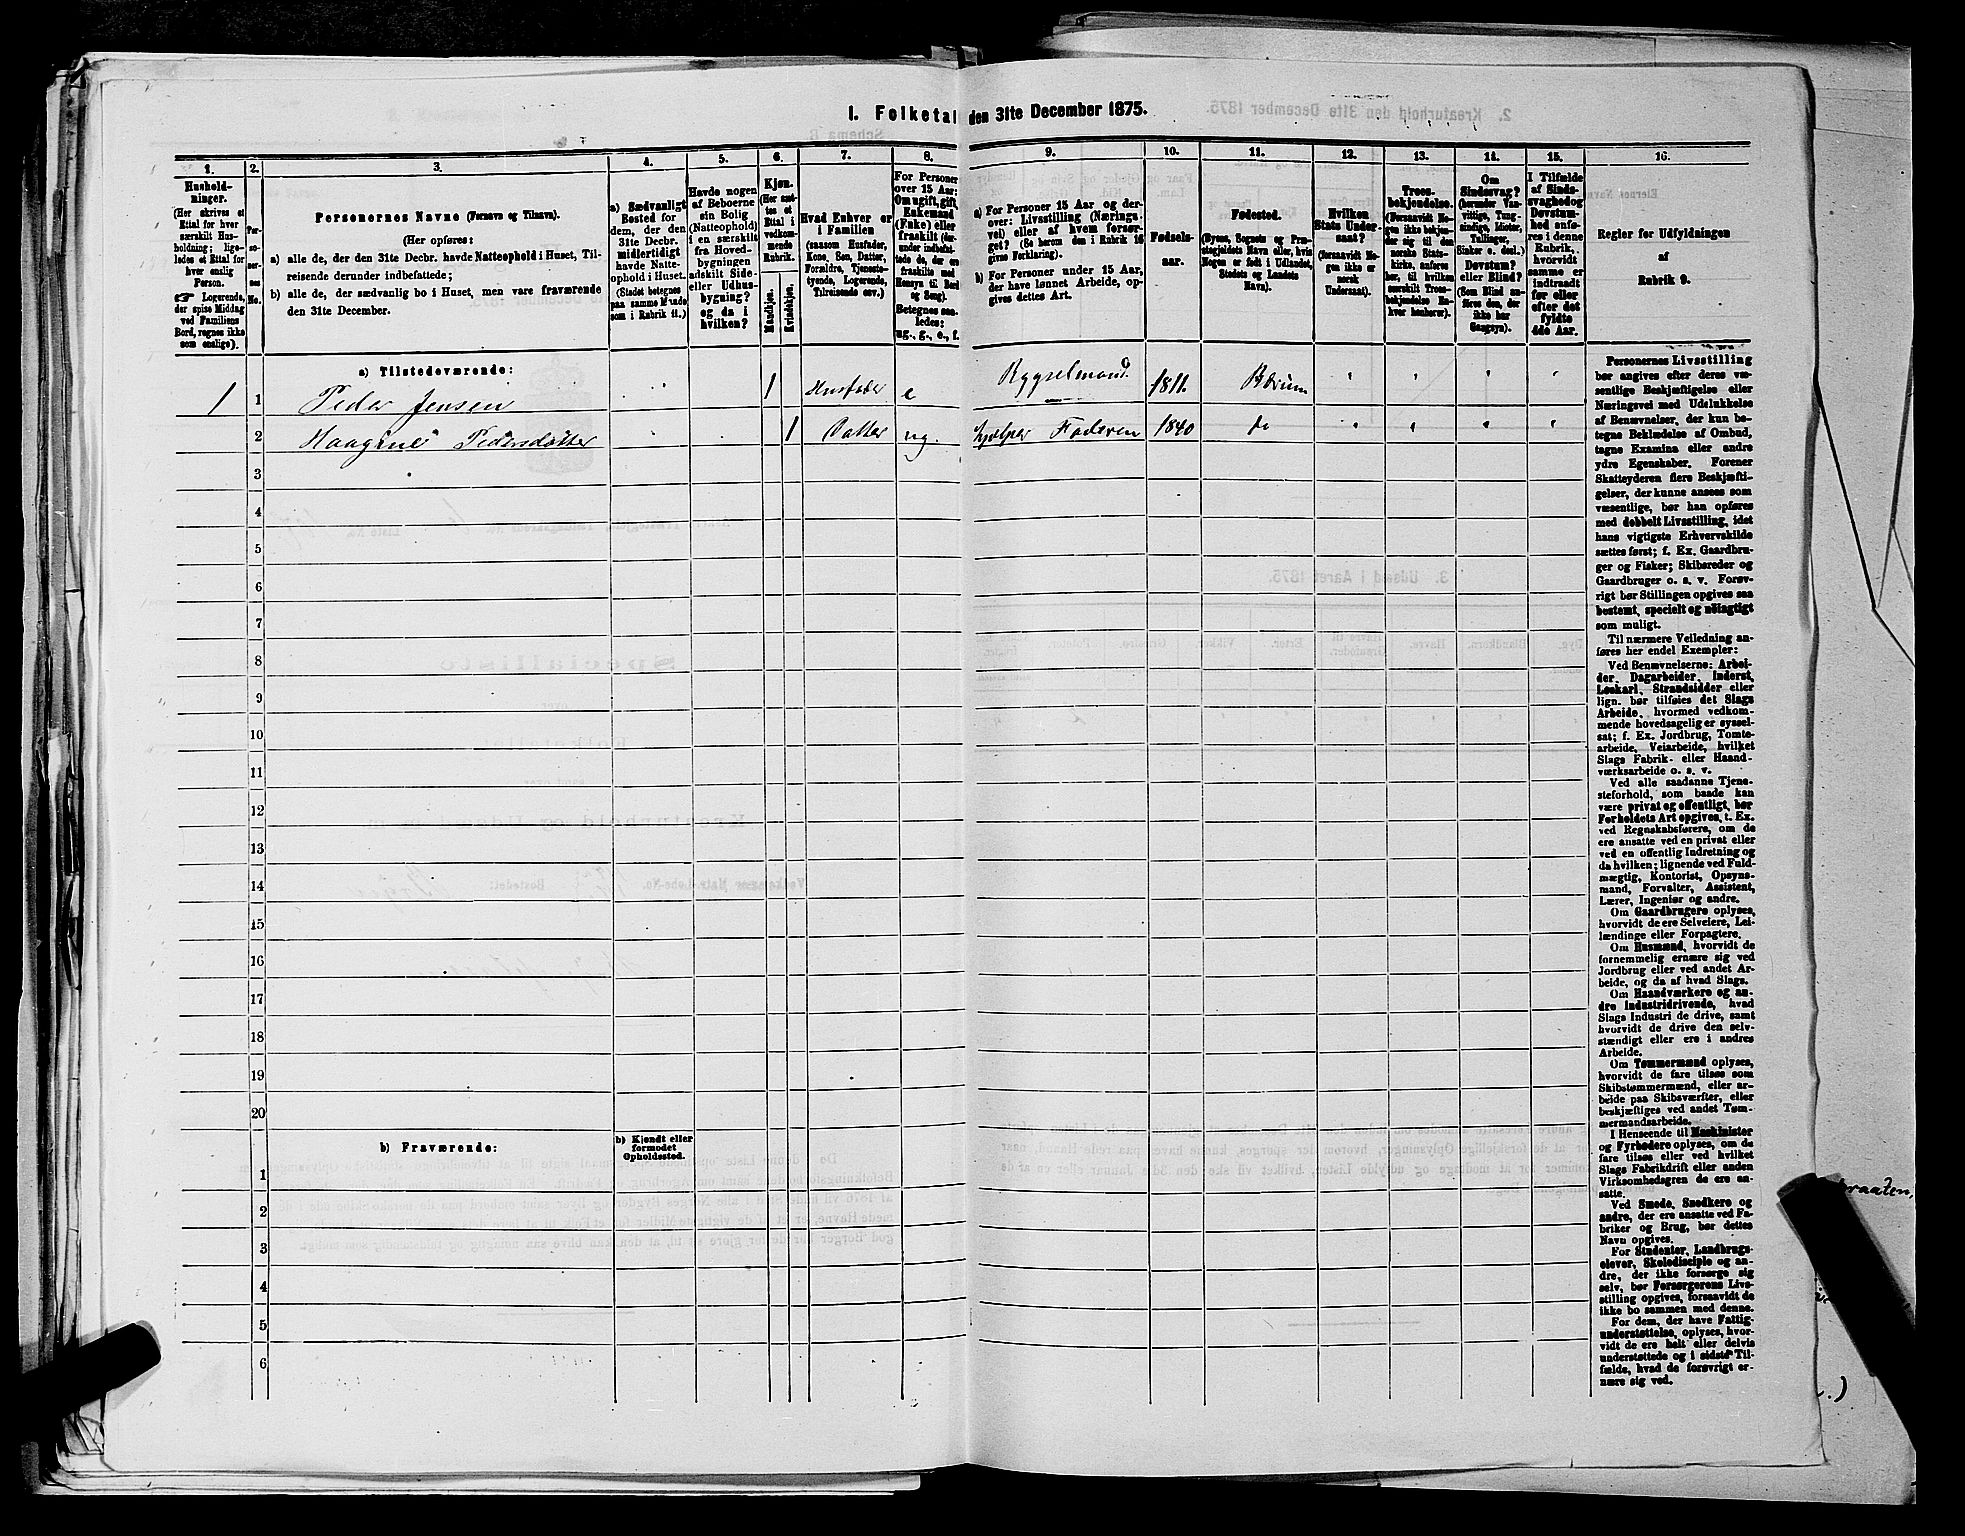 1. Folketal den 31te December 1875.
1. 2. 3. 4. 5. 6. 7. 8. 9. 10. 11. 12. 13. 14. 15. 16.
Hushold-
ninger.
(Her skrives et
Ettal for hver
særskilt Hus-
holdning; lige-
ledes et Ettal for
hver enslig
Person.
☞ Logerende,
der spise Middag
ved Familiens
Bord, regnes ikke
som enslige).
Personernes Navne (Fornavn og Tilnavn).
(Her opføres:
a) alle de, der den 31te Decbr. havde Natteophold i Huset, Til-
reisende derunder indbefattede;
b) alle de, der sædvanlig bo i Huset, men vare fraværende
den 31te December.
a) Sædvanligt
Bosted for
dem, der den
31te Decbr.
midlertidigt
havde Natte-
ophold i Huset.
(Stedet betegnes
paa samme Maade
som i Rubrik 11.)
Havde nogen
af Beboerne
sin Bolig
(Natteophold)
i en særskilt
fra Hoved-
bygningen
adskilt Side-
eller Udhus-
bygning?
og da i
hvilken?
Kjøn.
(Her sæt-
tes et
Ettal i
vedkom-
mende
Rubrik.
Mandkjøn.
Kvindekjøn.
Hvad Enhver er
i Familien
(saasom Husfader,
Kone, Søn, Datter,
Forældre, Tjeneste-
tyende, Logerende,
Tilreisende osv.)
For Personer
over 15 Aar:
Om ugift, gift,
Enkemand
(Enke) eller
fraskilt (der-
under indbefat-
tede de, der ere
fraskilte med
Hensyn til Bord
og Seng).
Betegnes saa-
ledes:
ug., g., e., f.
a) For Personer 15 Aar og der-
over: Livsstilling (Nærings-
vei) eller af hvem forsør-
get? (Se herom den i Rubrik 16
givne Forklaring).
b) For Personer under 15 Aar,
der have lønnet Arbeide, op-
gives dettes Art.
Fødsels-
aar.
Fødested.
(Byens, Sognets og Præ-
stegjeldets Navn eller, hvis
Nogen er født i Udlandet,
Stedets og Landets
Navn).
Hvilken
Stats Under-
saat?
(forsaavidt No-
gen ikke er
norsk
Undersaat).
Troes-
bekjendelse.
(Forsaavidt No-
gen ikke bekjen-
der sig til den
norske Stats-
kirke, anføres
her, til hvilken
særskilt Troes-
bekjendelse En-
hver henhører).
Om
Sindssvag?
(herunder Van-
vittige, Tung-
sindige, Idioter,
Tullinger,
Sinker o. desl.)
Døvstum?
eller Blind?
(Som Blind an-
føres den, der
ikke har
Gangsyn).
I Tilfælde
af Sinds-
svaghed og
Døvstum-
hed anfø-
res i denne
Rubrik,
hvorvidt
samme er
indtraadt
før eller
efter det
fyldte
4de Aar.
Regler for Udfyldningen
af
Rubrik 9.
a) Tilstedeværende:
1 1 Peder Jensen 1 Husfader e 1811 Bærum
2 Haagine Pedersdatter 1 Datter ug. hjælper Faderen 1840 do
3
4
5
6
7
8
9
10
11
12
13
14
15
16
17
18
19
20
b) Fraværende:
b) Kjendt eller
formodet
Opholdssted.
1
2
3
4
5
6
Personernes Livsstilling
bør angives efter deres væ-
sentlige Beskjæftigelse eller
Næringsvei med Udelukkelse
af Benævnelser, der kun be-
tegne Beklædelse af Ombud,
tagne Examina eller andre
ydre Egenskaber. Forener
Skatteyderen flere Beskjæfti-
gelser, der kunne ansees som
væsentlige, bør han opføres
med dobbelt Livsstilling, idet
hans vigtigste Erhvervskilde
sættes først; f. Ex. Gaardbru-
ger og Fisker; Skibsreder og
Gaardbruger o. s. v. Forøv-
rigt bør Stillingen opgives saa
bestemt, specielt og nøiagtigt
som muligt.
Til nærmere Veiledning an-
føres her endel Exempler:
Ved Benævnelserne: Arbei-
der, Dagarbeider, Inderst,
Løskarl, Strandsidder eller
lign. bør tilføies det Slags
Arbeide, hvormed vedkom-
mende hovedsagelig er syssel-
sat; f. Ex. Jordbrug, Tomte-
arbeide, Veiarbeide, hvilket
Slags Fabrik- eller Haand-
værksarbeide o. s. v.
Ved alle saadanne Tjene-
steforhold, som baade kan
være privat og offentligt, bør
Forholdets Art opgives, t. Ex.
ved Regnskabsførere, om de
ere ansatte ved en privat eller
ved en offentlig Indretning og
da hvilken; lignende ved Fuld-
mægtig, Kontorist, Opsyns-
mand, Forvalter, Assistent,
Lærer, Ingeniør og andre.
Om Gaardbrugere oplyses,
hvorvidt de ere Selveiere, Lei-
lændinge eller Forpagtere.
Om Husmænd, hvorvidt de
fornemmelig ernære sig ved
Jordbrug eller ved andet Ar-
beide, og da af hvad Slags.
Om Haandværkere og an-
dre Industridrivende, hvad
Slags Industri de drive, samt
hvorvidt de drive den selv-
stændigt eller ere i andres
Arbeide.
Om Tømmermænd oplyses,
hvorvidt de fare tilsøs som
Skibstømmermænd, eller ar-
beide paa Skibsværfter, eller
beskjæftiges ved andet Tøm-
mermandsarbeide.
I Henseende til Maskinister
og Fyrbødere oplyses, om de
fare tilsøs eller ved hvilket
Slags Fabrikdrift eller anden
Virksomhedsgren de ere an-
satte.
Ved Smede, Snedkere og
andre, der ere ansatte ved Fa-
briker og Brug, bør dettes
Navn opgives.
For Studenter, Landbrugs-
elever, Skoledisciple og an-
dre, der ikke forsørge sig
selv, bør Forsørgerens Livs-
stilling opgives, forsaavidt de
ikke bo sammen med denne.
For dem, der have Fattig-
understøttelse, oplyses, hvor-
vidt de ere helt eller delvis
understøttede og i sidste Til-
fælde, hvad de forøvrigt er-
nære sig ved.